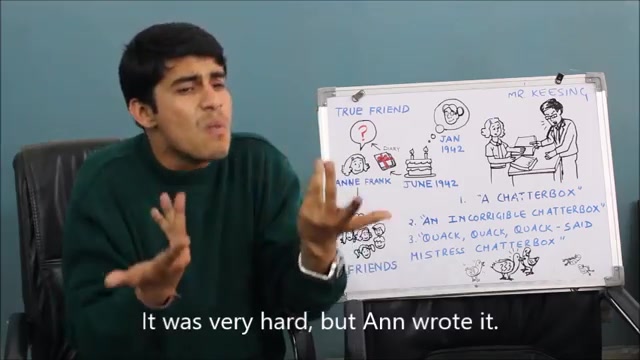 TRUE FRIEND
MR KEESING
?
DIARY
JAN
1942
ANNE FRANK
JUNE 1942
1. "A CHATTERBOX"
2. "AN INCORRIGIBLE CHATTERBOX"
3. "QUACK, QUACK, QUACK - SAID
MISTRESS CHATTERBOX"
FRIENDS
It was very hard, but Ann wrote it.